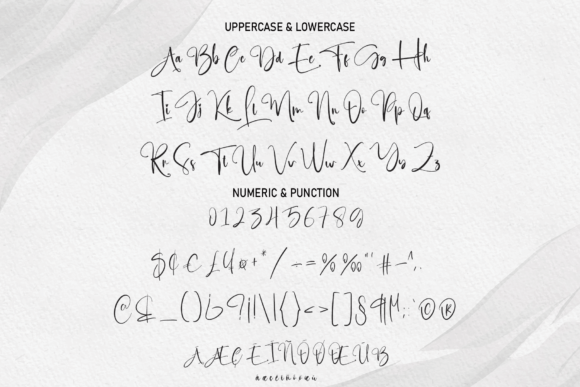 UPPERCASE & LOWERCASE
Aa Bb Cc Dd Ee Ff Gg Hh
Ii Jj Kk Ll Mm Nn Oo Pp Qq
Rr Ss Tt Uu Vv Ww Xx Yy Zz
NUMERIC & PUNCTION
0123456789
$ ¢ € £ ¤ + * / - ÷ = % ‰ " ' # – ^ , .
@ & _ ( ) ? ¡ | \ | { } < > [ ] § ¶ : ; © ®